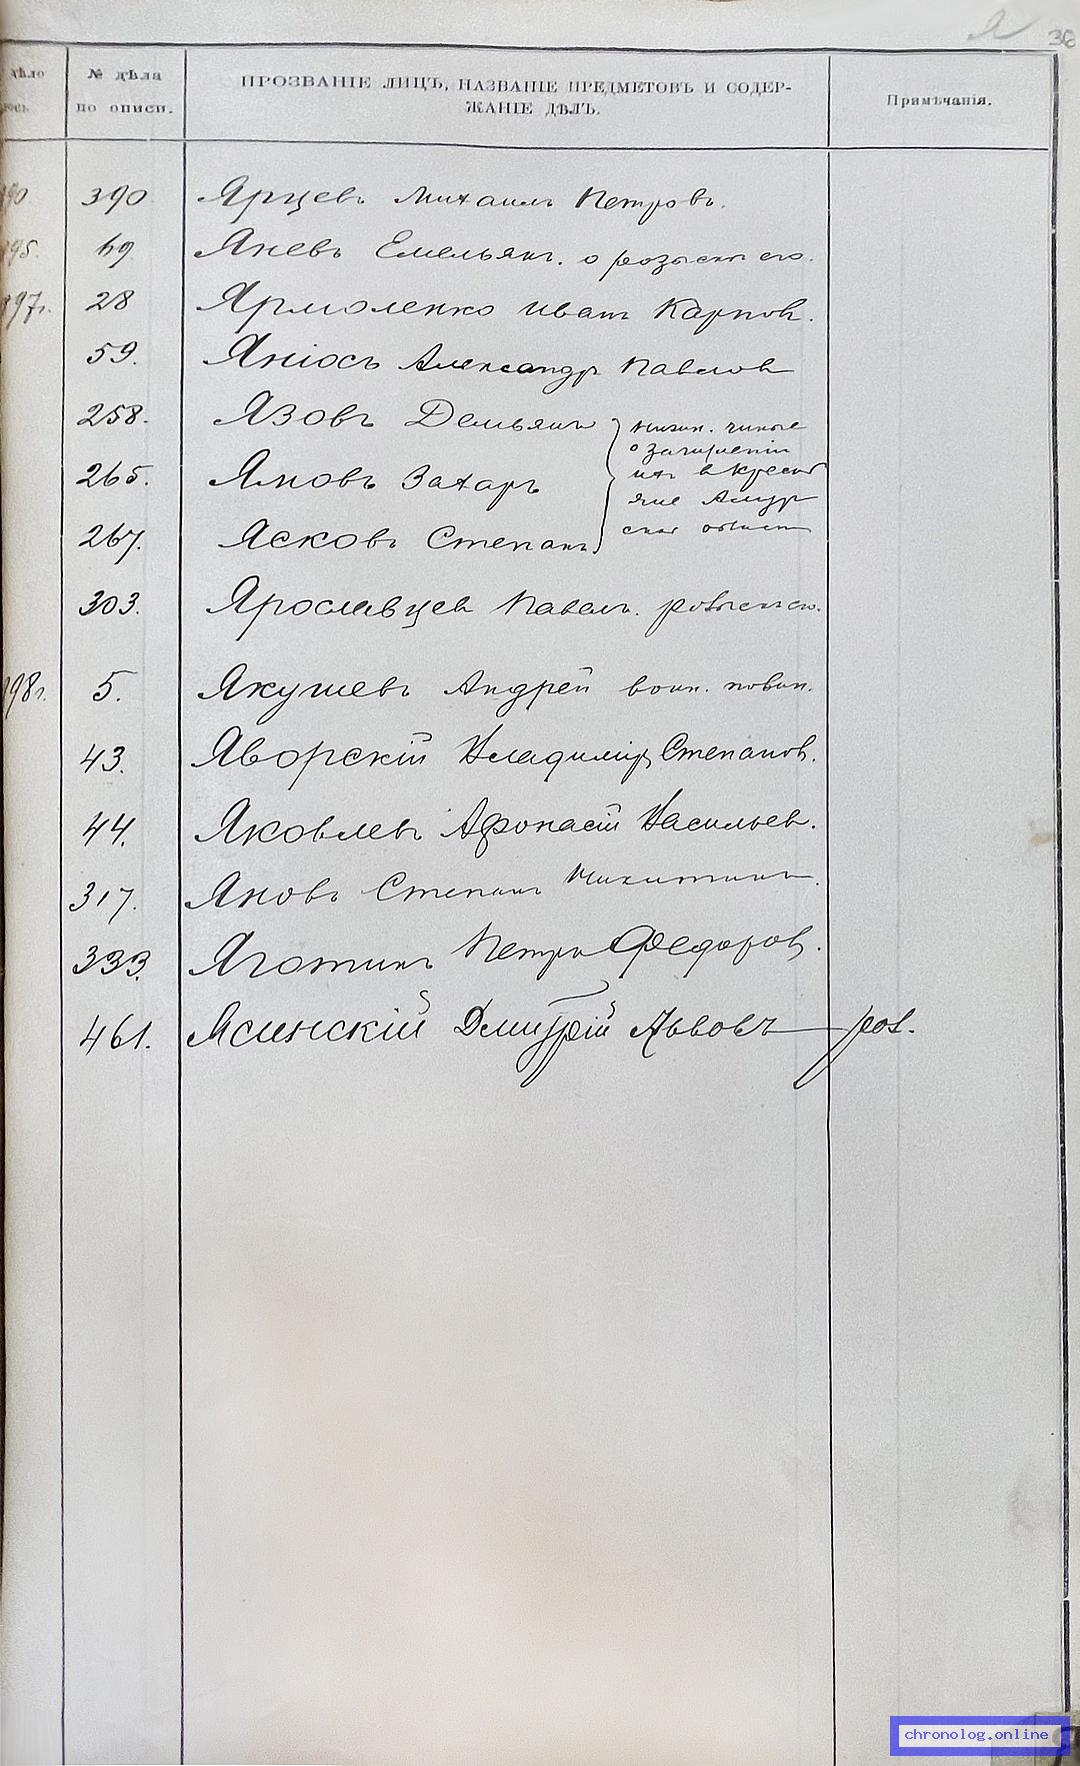 Я 36
дѣло
№ дѣла
по описи.
ПРОЗВАНІЕ ЛИЦЪ, НАЗВАНІЕ ПРЕДМЕТОВЪ И СОДЕР-
ЖАНІЕ ДѢЛЪ.
Примѣчанія.
90 390 Ярцевъ Михаилъ Петровъ.
95. 69 Яневъ Емельянъ. о розыскѣ его.
97г. 28 Ярмоленко Иванъ Карповъ.
59. Яніосъ Александръ Павловъ
258. Язовъ Демьянъ
265. Ямовъ Захаръ
267. Ясковъ Степанъ
нижн. чины
о зачисленіи
ихъ в крестья
яне Амур
ской области
303. Ярославцев Павелъ. розыск его.
98г. 5. Якушевъ Андрей воин. повин.
43. Яворскій Владиміръ Степановъ.
44. Яковлевъ Афонасій Васильев.
317. Яновъ Степанъ Никитинъ.
333. Яготинъ Петръ Федоровъ.
461. Ясинскій Дмитрій Львовъ — роз.
chronolog.online